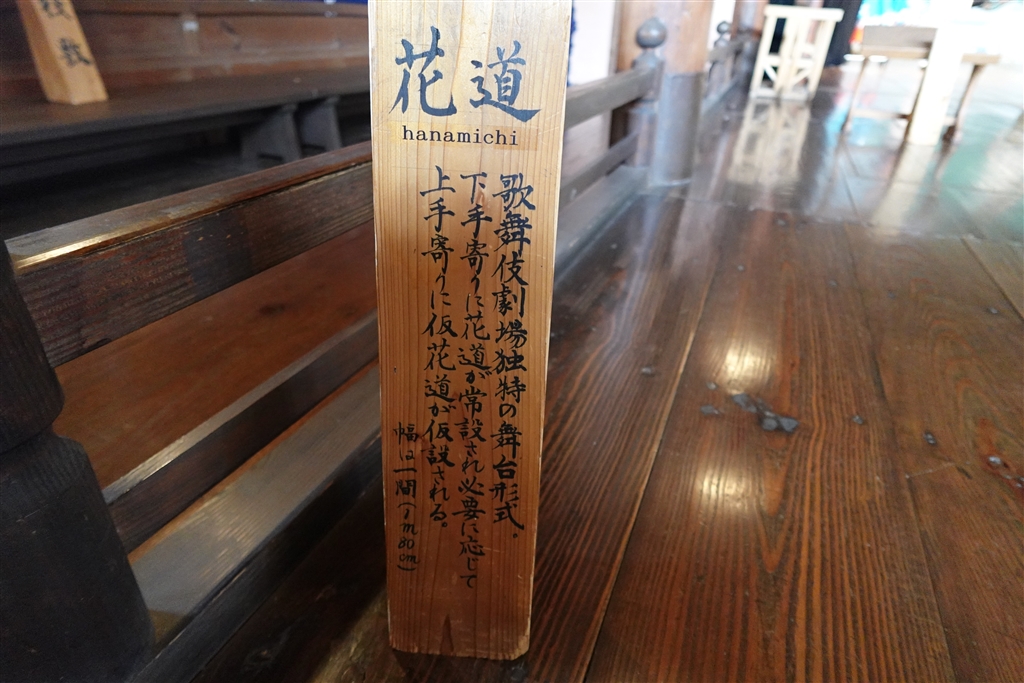 花道
hanamichi
歌舞伎劇場独特の舞台形式。
下手寄りに花道が常設され必要に応じて
上手寄りに仮花道が仮設される。
幅は一間(1m80cm)